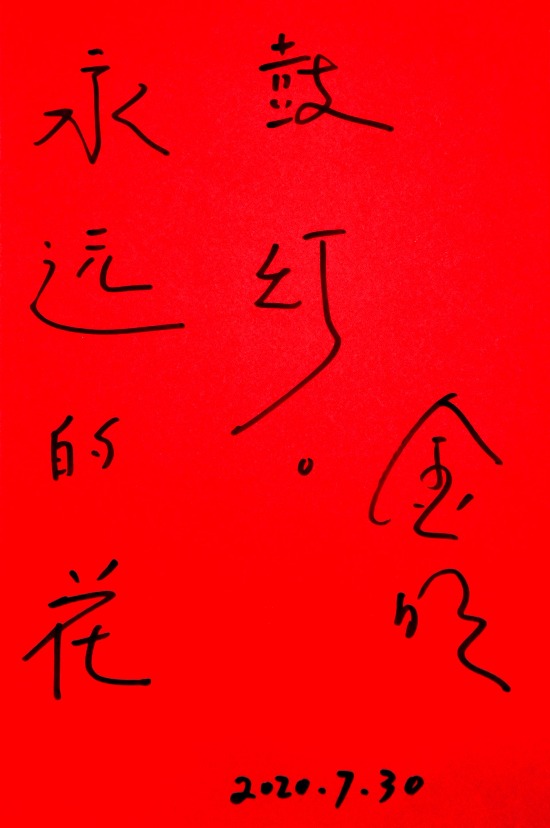 永远的花
鼓灯。
金
2020.7.30